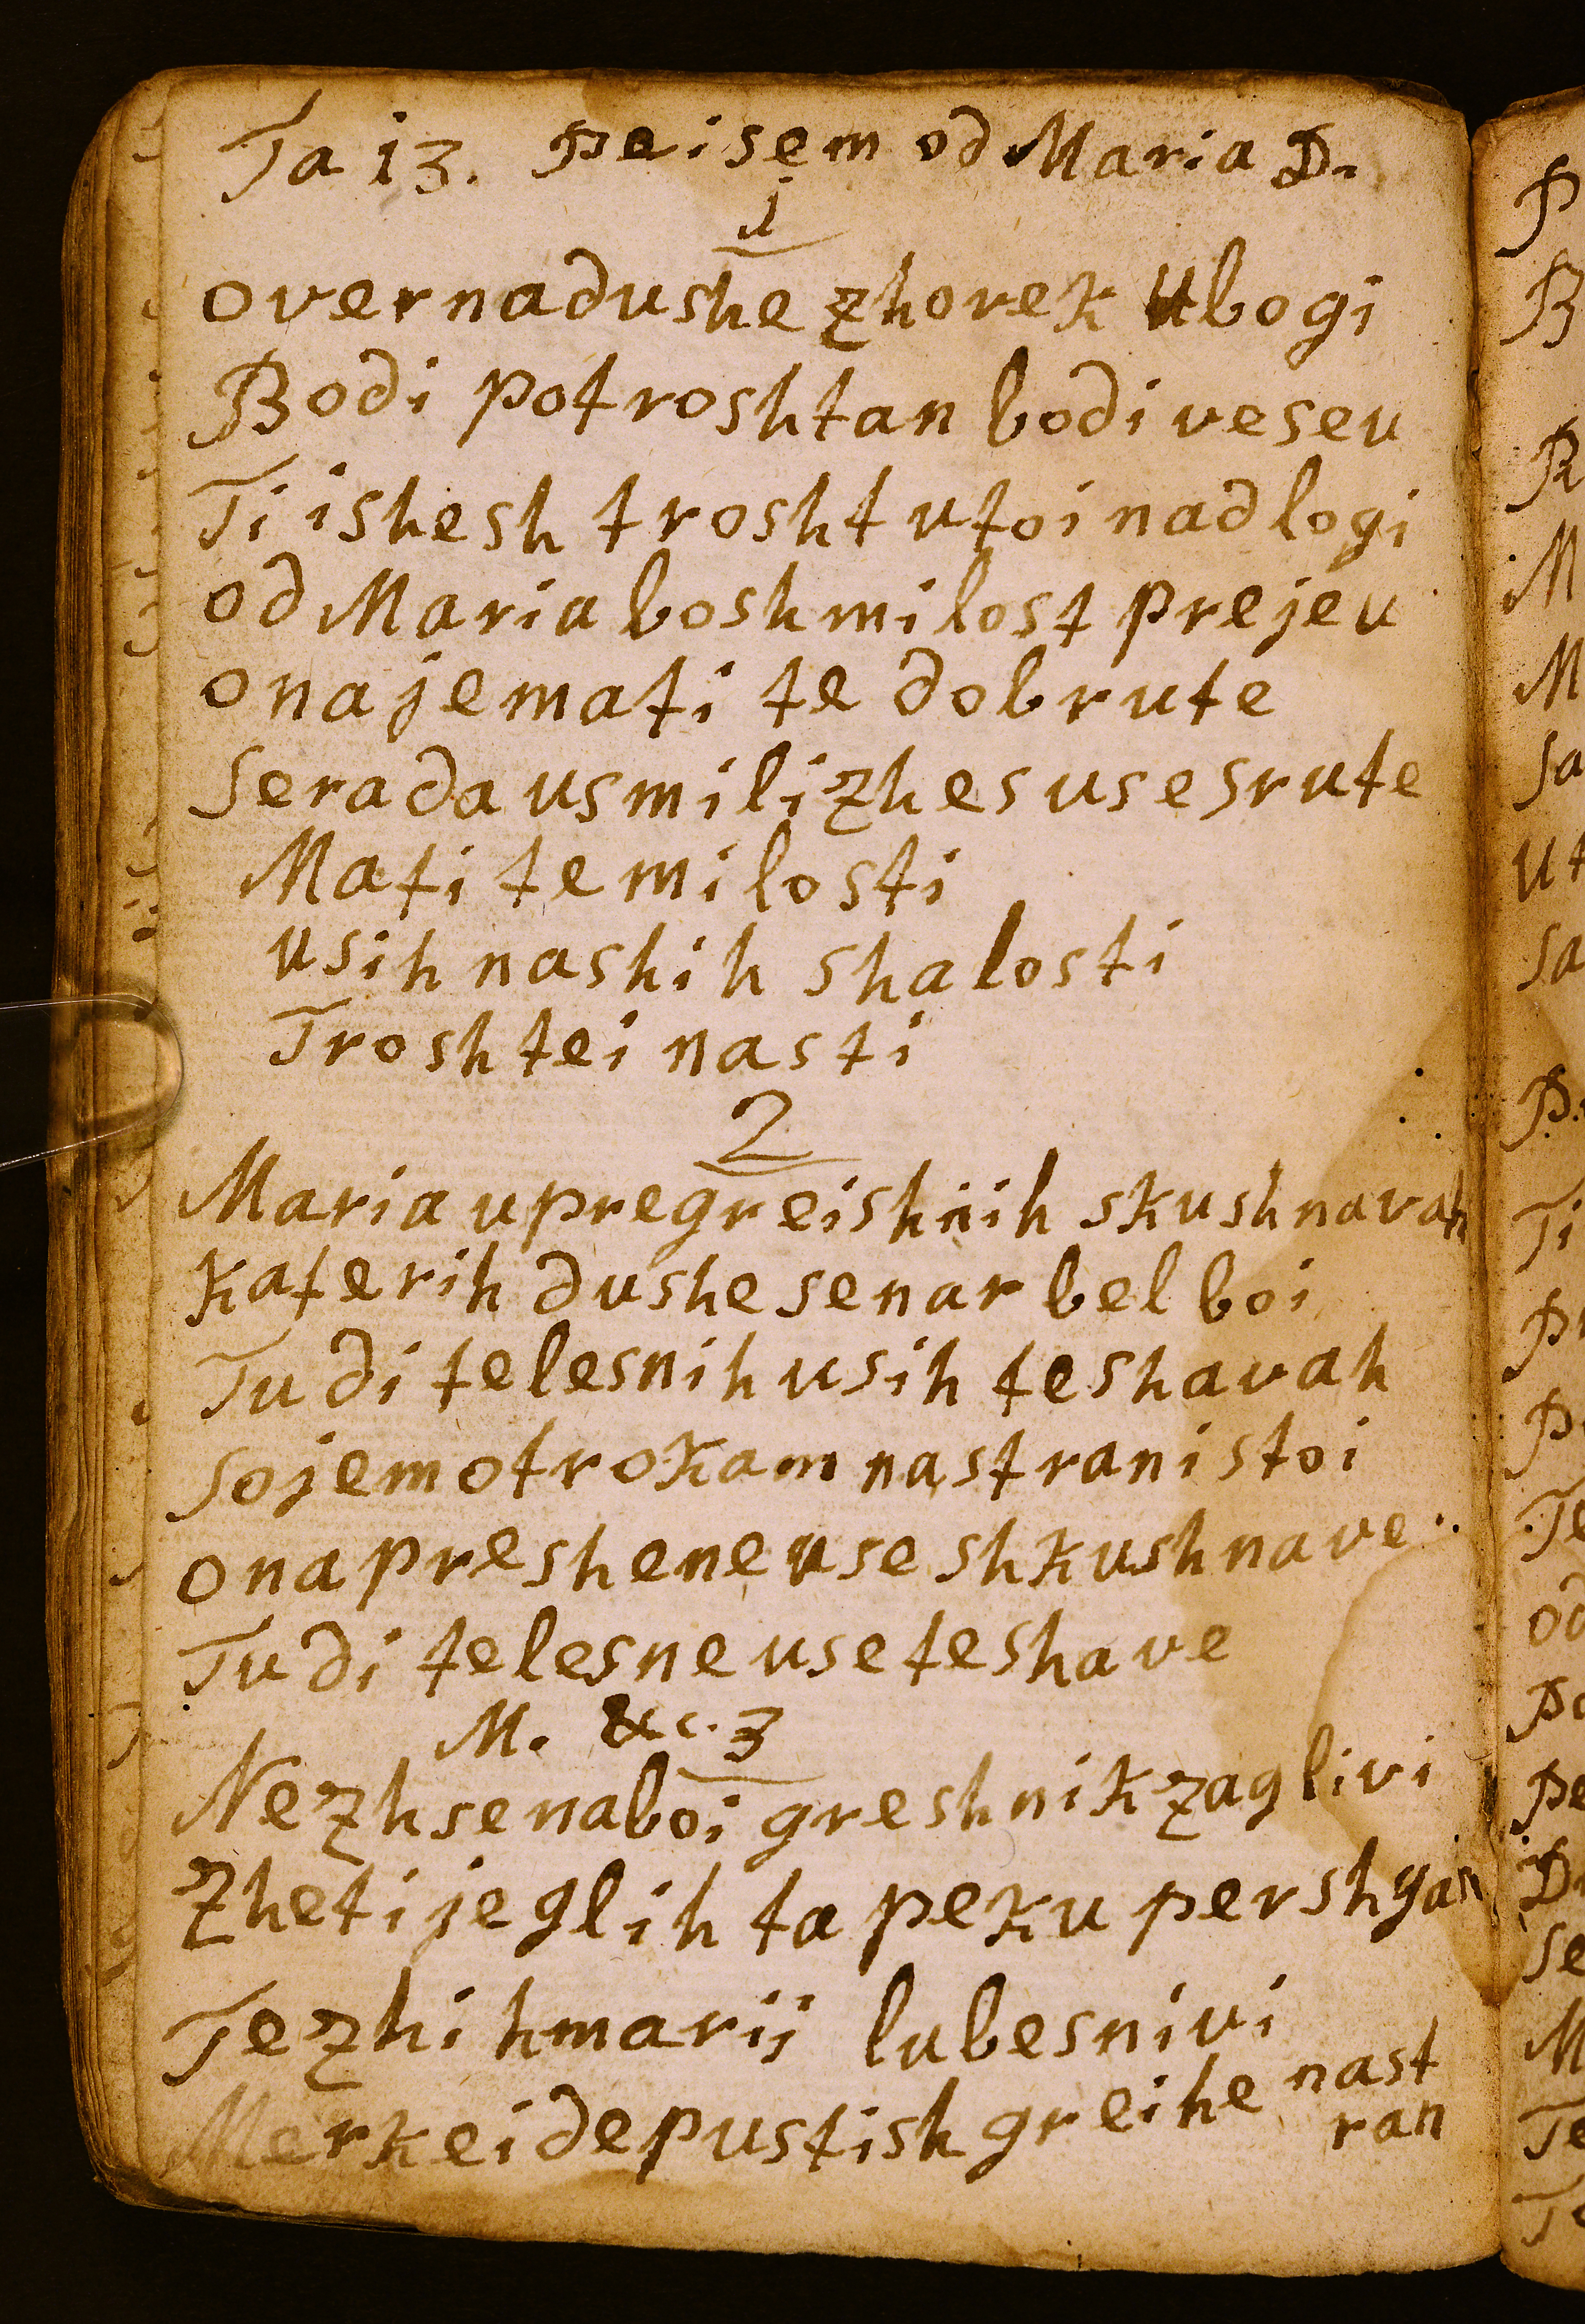 Ta 13. peisem od Maria D.
1
overnadushe zhovek ubogi
Bodi potroshtan bodi veseu
Ti ishesh trosht utoi nadlogi
od Maria bosh milost prejeu
ona jemati te dobrute
serada usmili zhes use srute
Mati te milosti
usih nashih shalosti
Troshtei nasti
2
Maria upregreishnih skushnavah
katerih dushe senar bel boi
Tudi telesnih usih teshavah
sojem otrokam nastrani stoi
ona preshene use shkushnave
Tudi telesne use teshave
M. &c. 3
Nezh se naboi greshnik zaglivi
Zheti je glih ta peku pershgan
Te zhi hmarij lubesnivi
Merkei de pustish greihe nast
ran